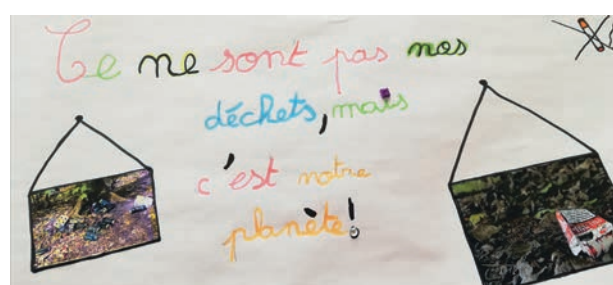 Ce ne sont pas nos
déchets, mais
c'est notre
planète!